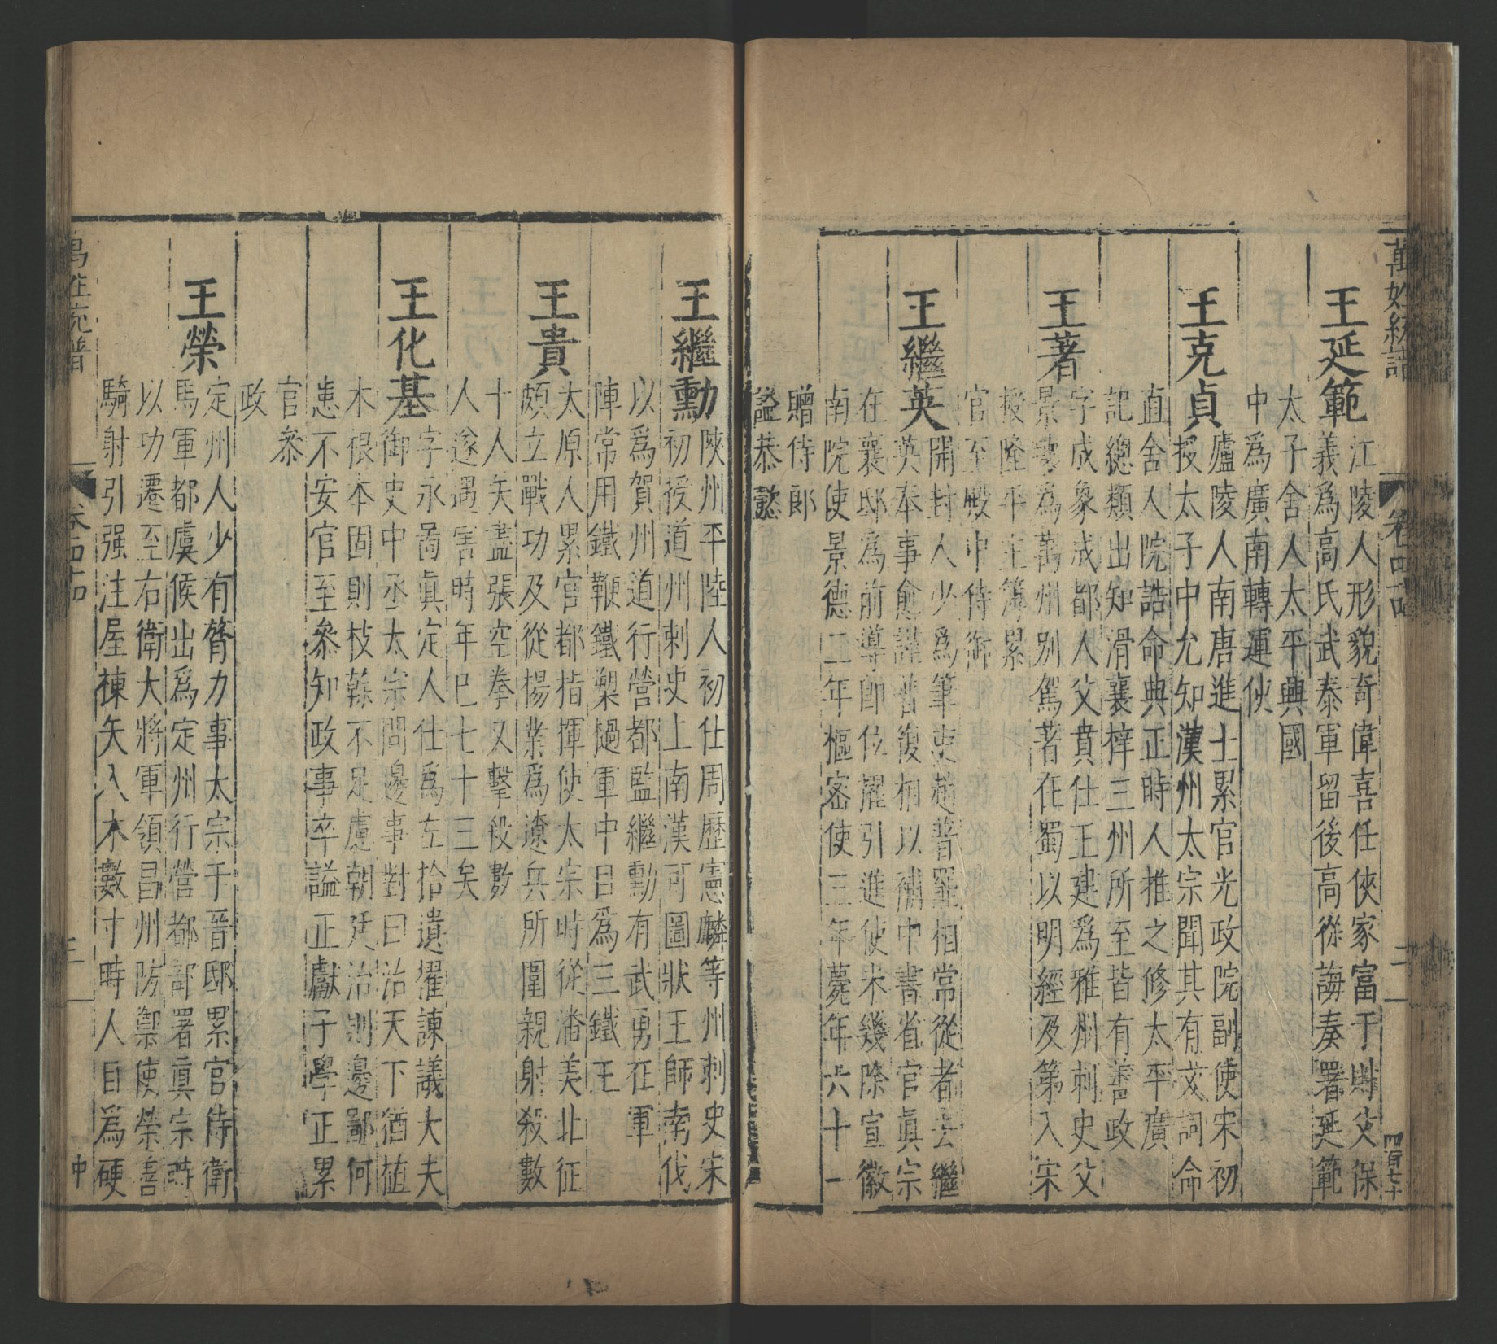 萬姓統譜 卷四十四
王延範
江陵人形貌奇偉喜任俠家富于財父保
義爲高氏武泰軍留後高從誨奏署延範
太子舍人太平興國
中爲廣南轉運使
王克貞
廬陵人南唐進士累官光政院副使宋初
授太子中允知漢州太宗聞其有文詞命
直舍人院誥命典正時人推之修太平廣
記總類出知滑襄梓三州所至皆有善政
王著
字成象成都人父賁仕王建爲雅州刺史父
景瓌爲萬州別駕著在蜀以明經及第入宋
授隆平主簿累
官至殿中侍御
王繼英
開封人少爲筆吏趙普罷相常從者去繼
英奉事愈謹普復相以補中書省官真宗
在襄邸爲前導即位擢引進使未幾除宣徽
南院使景德二年樞密使三年薨年六十一
贈侍郎
謚恭懿
王繼勳
陜州平陸人初仕周歷憲麟等州刺史宋
初授道州刺史上南漢可圖狀王師南伐
以爲賀州道行營都監繼勳有武勇在軍
陣常用鐵鞭鐵槊檛軍中目爲三鐵王
王貴
太原人累官都指揮使太宗時從潘美北征
頗立戰功及從楊業爲遼兵所圍親射殺數
十人矢盡張空拳又擊殺數
人遂遇害時年巳七十三矣
王化基
字永啚真定人仕爲左拾遺擢諫議大夫
御史中丞太宗問邊事對曰治天下猶植
木根本固則枝榦不足慮朝廷治則邊鄙何
患不安官至參知政事卒謚正獻子學正累
官參
政
王榮
定州人少有膂力事太宗于晉邸累官侍衛
馬軍都虞候出爲定州行營都部署真宗
以功遷至右衛大將軍領昌州防禦使榮善
騎射引强注屋棟矢入木數寸時人目爲硬